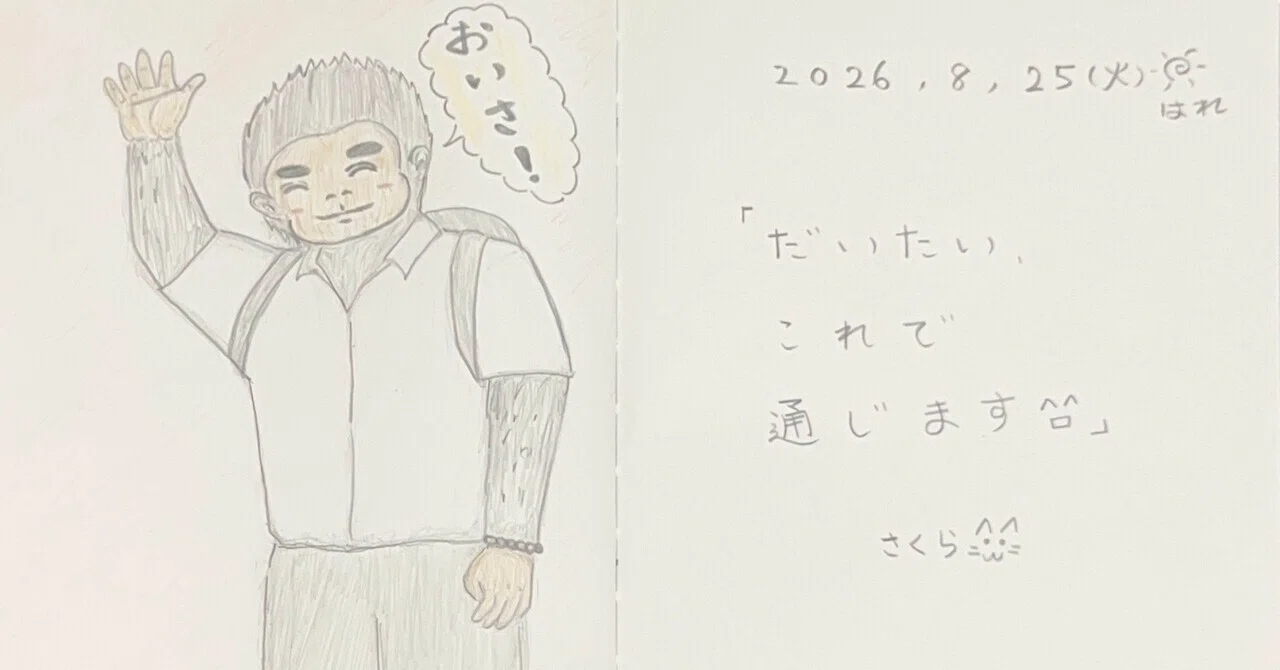 おいさ！
2026,8,25(火) はれ
「だいたい、
これで
通じます^^」
さくら